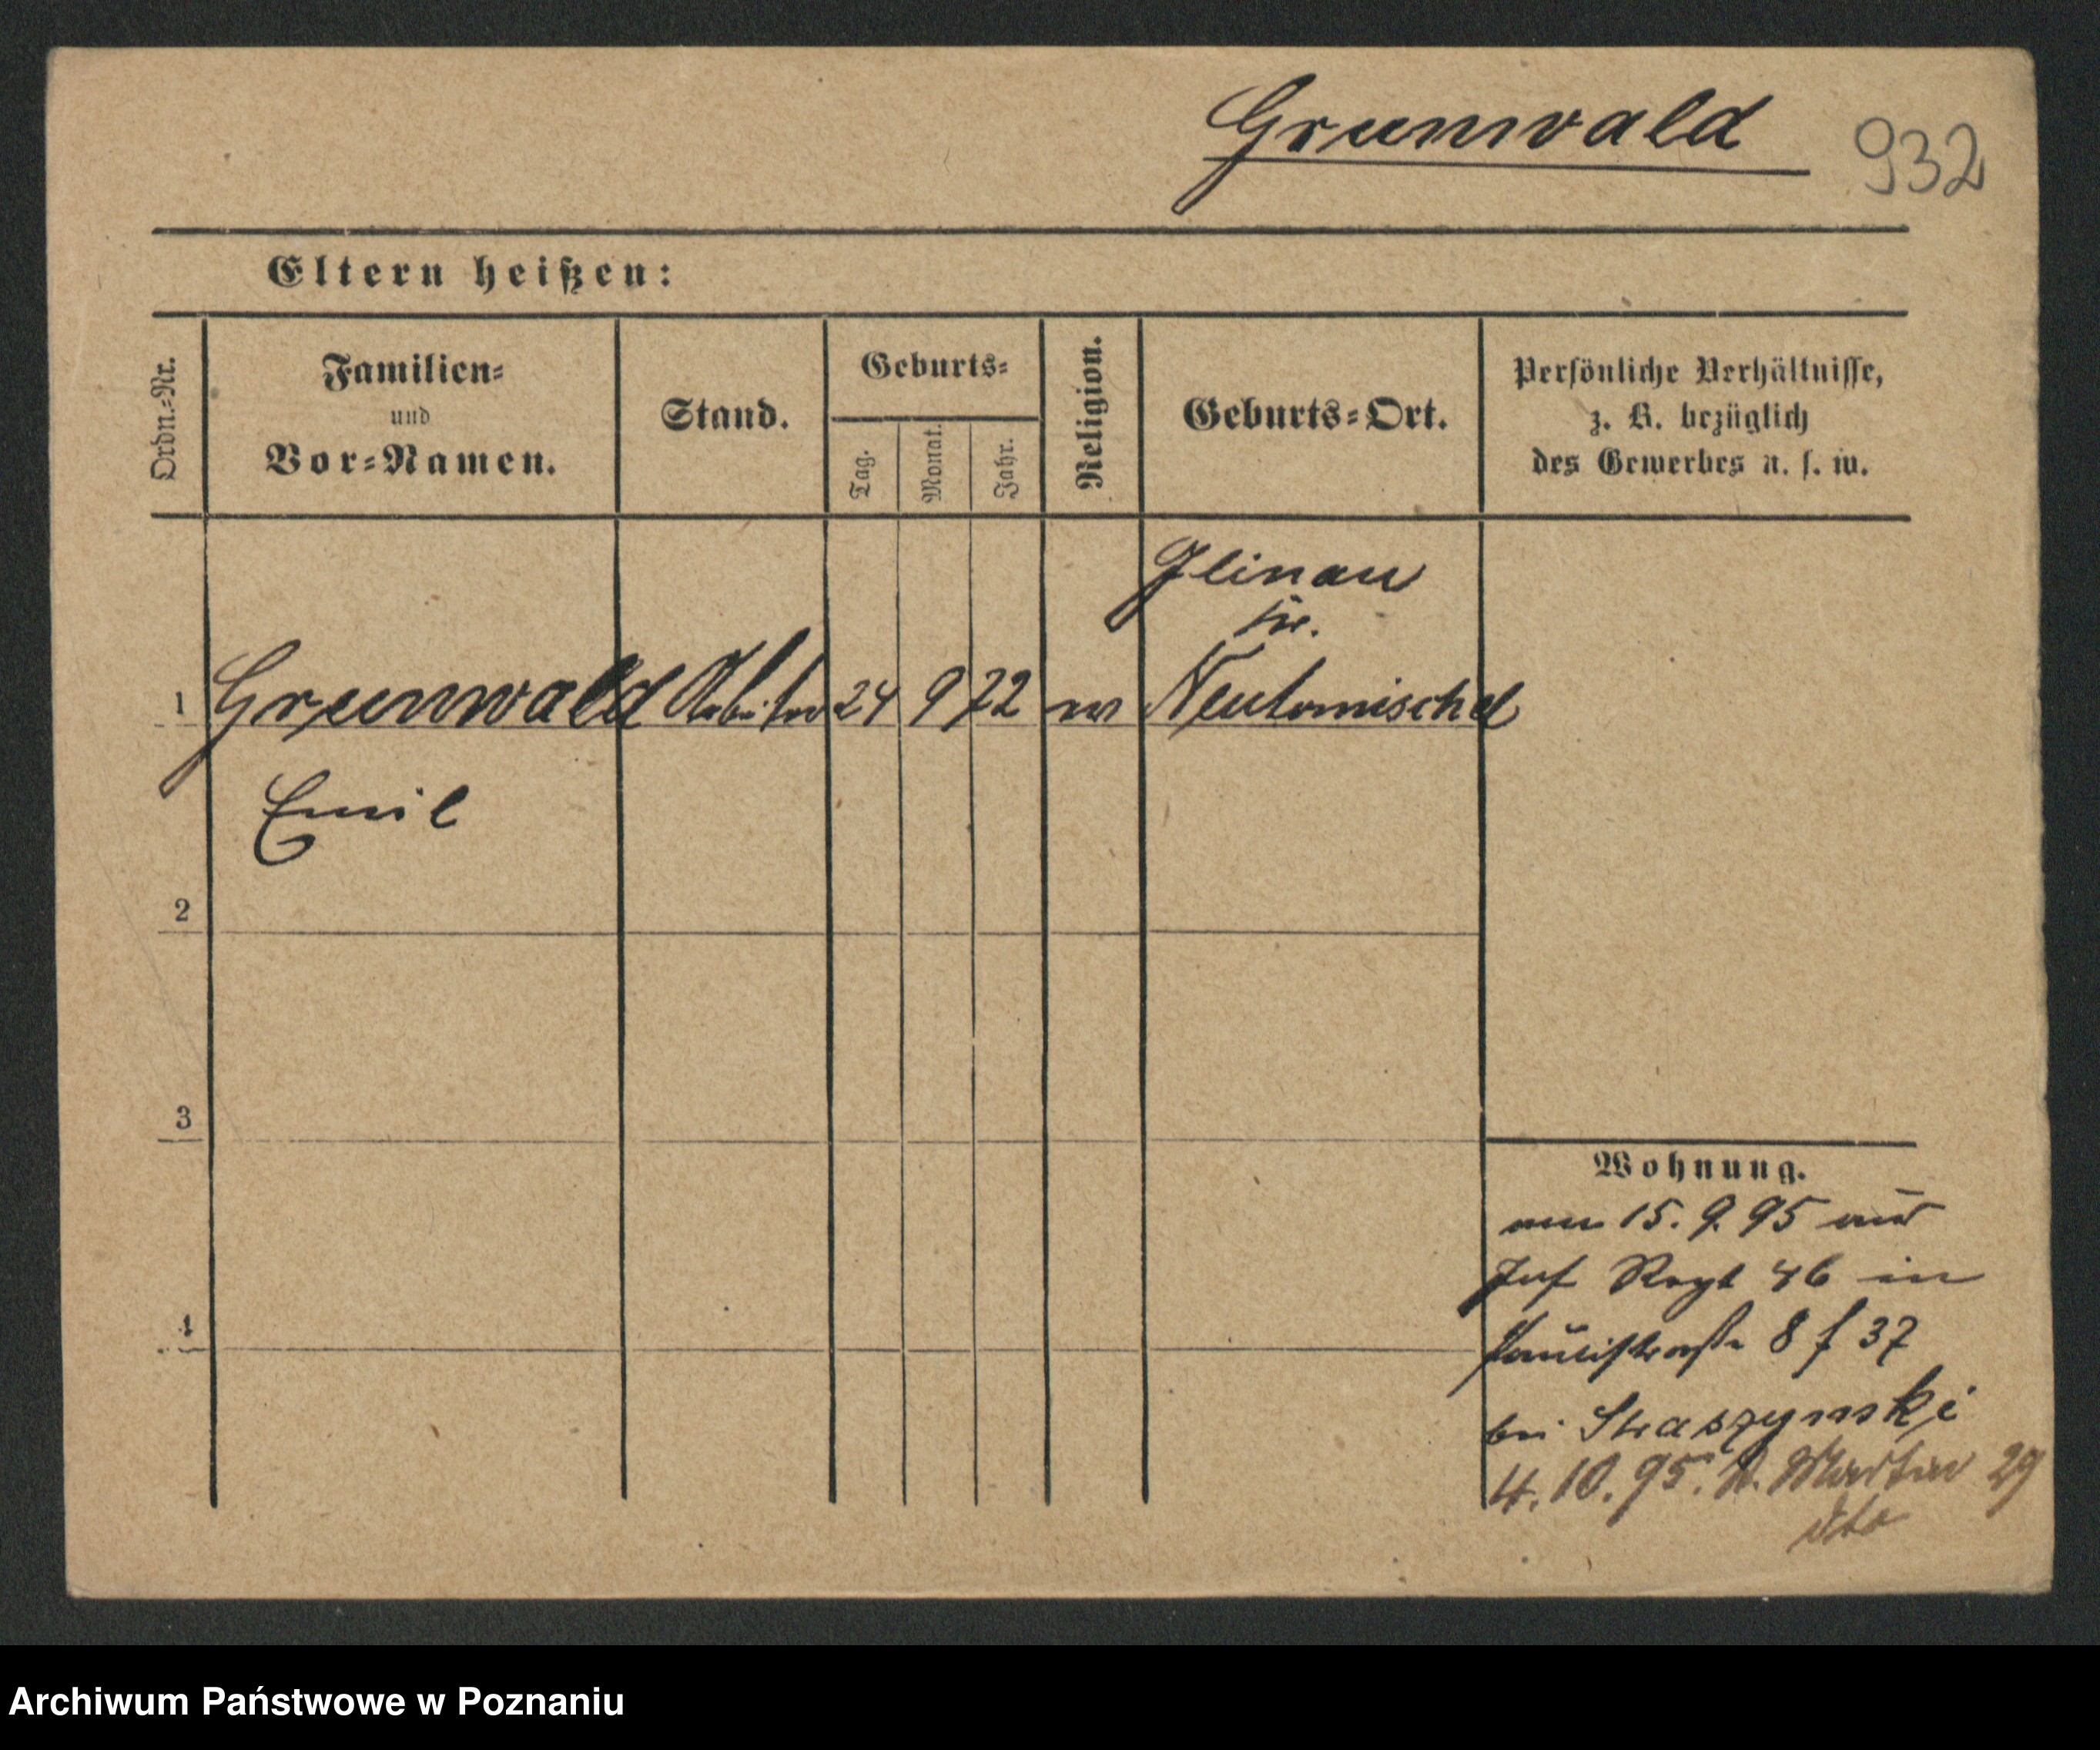 Grunwald 932
Eltern heißen:
Ordn.-Nr.
Familien-
und
Vor-Namen.
Stand.
Geburts-
Tag.
Monat.
Jahr.
Religion.
Geburts-Ort.
Persönliche Verhältnisse,
z. B. bezüglich
des Gewerbes u. s. w.
Glinau
Kr.
1 Grunwald Arbeiter 24 9 72 ev Neutomischel
Emil
2
3
4
Wohnung.
am 15. 9. 95 aus
Inf Regt 46 in
Paulistraße 8 f 37
bei Straszynski
4. 10. 95. St. Martin 29
dto
Archiwum Państwowe w Poznaniu